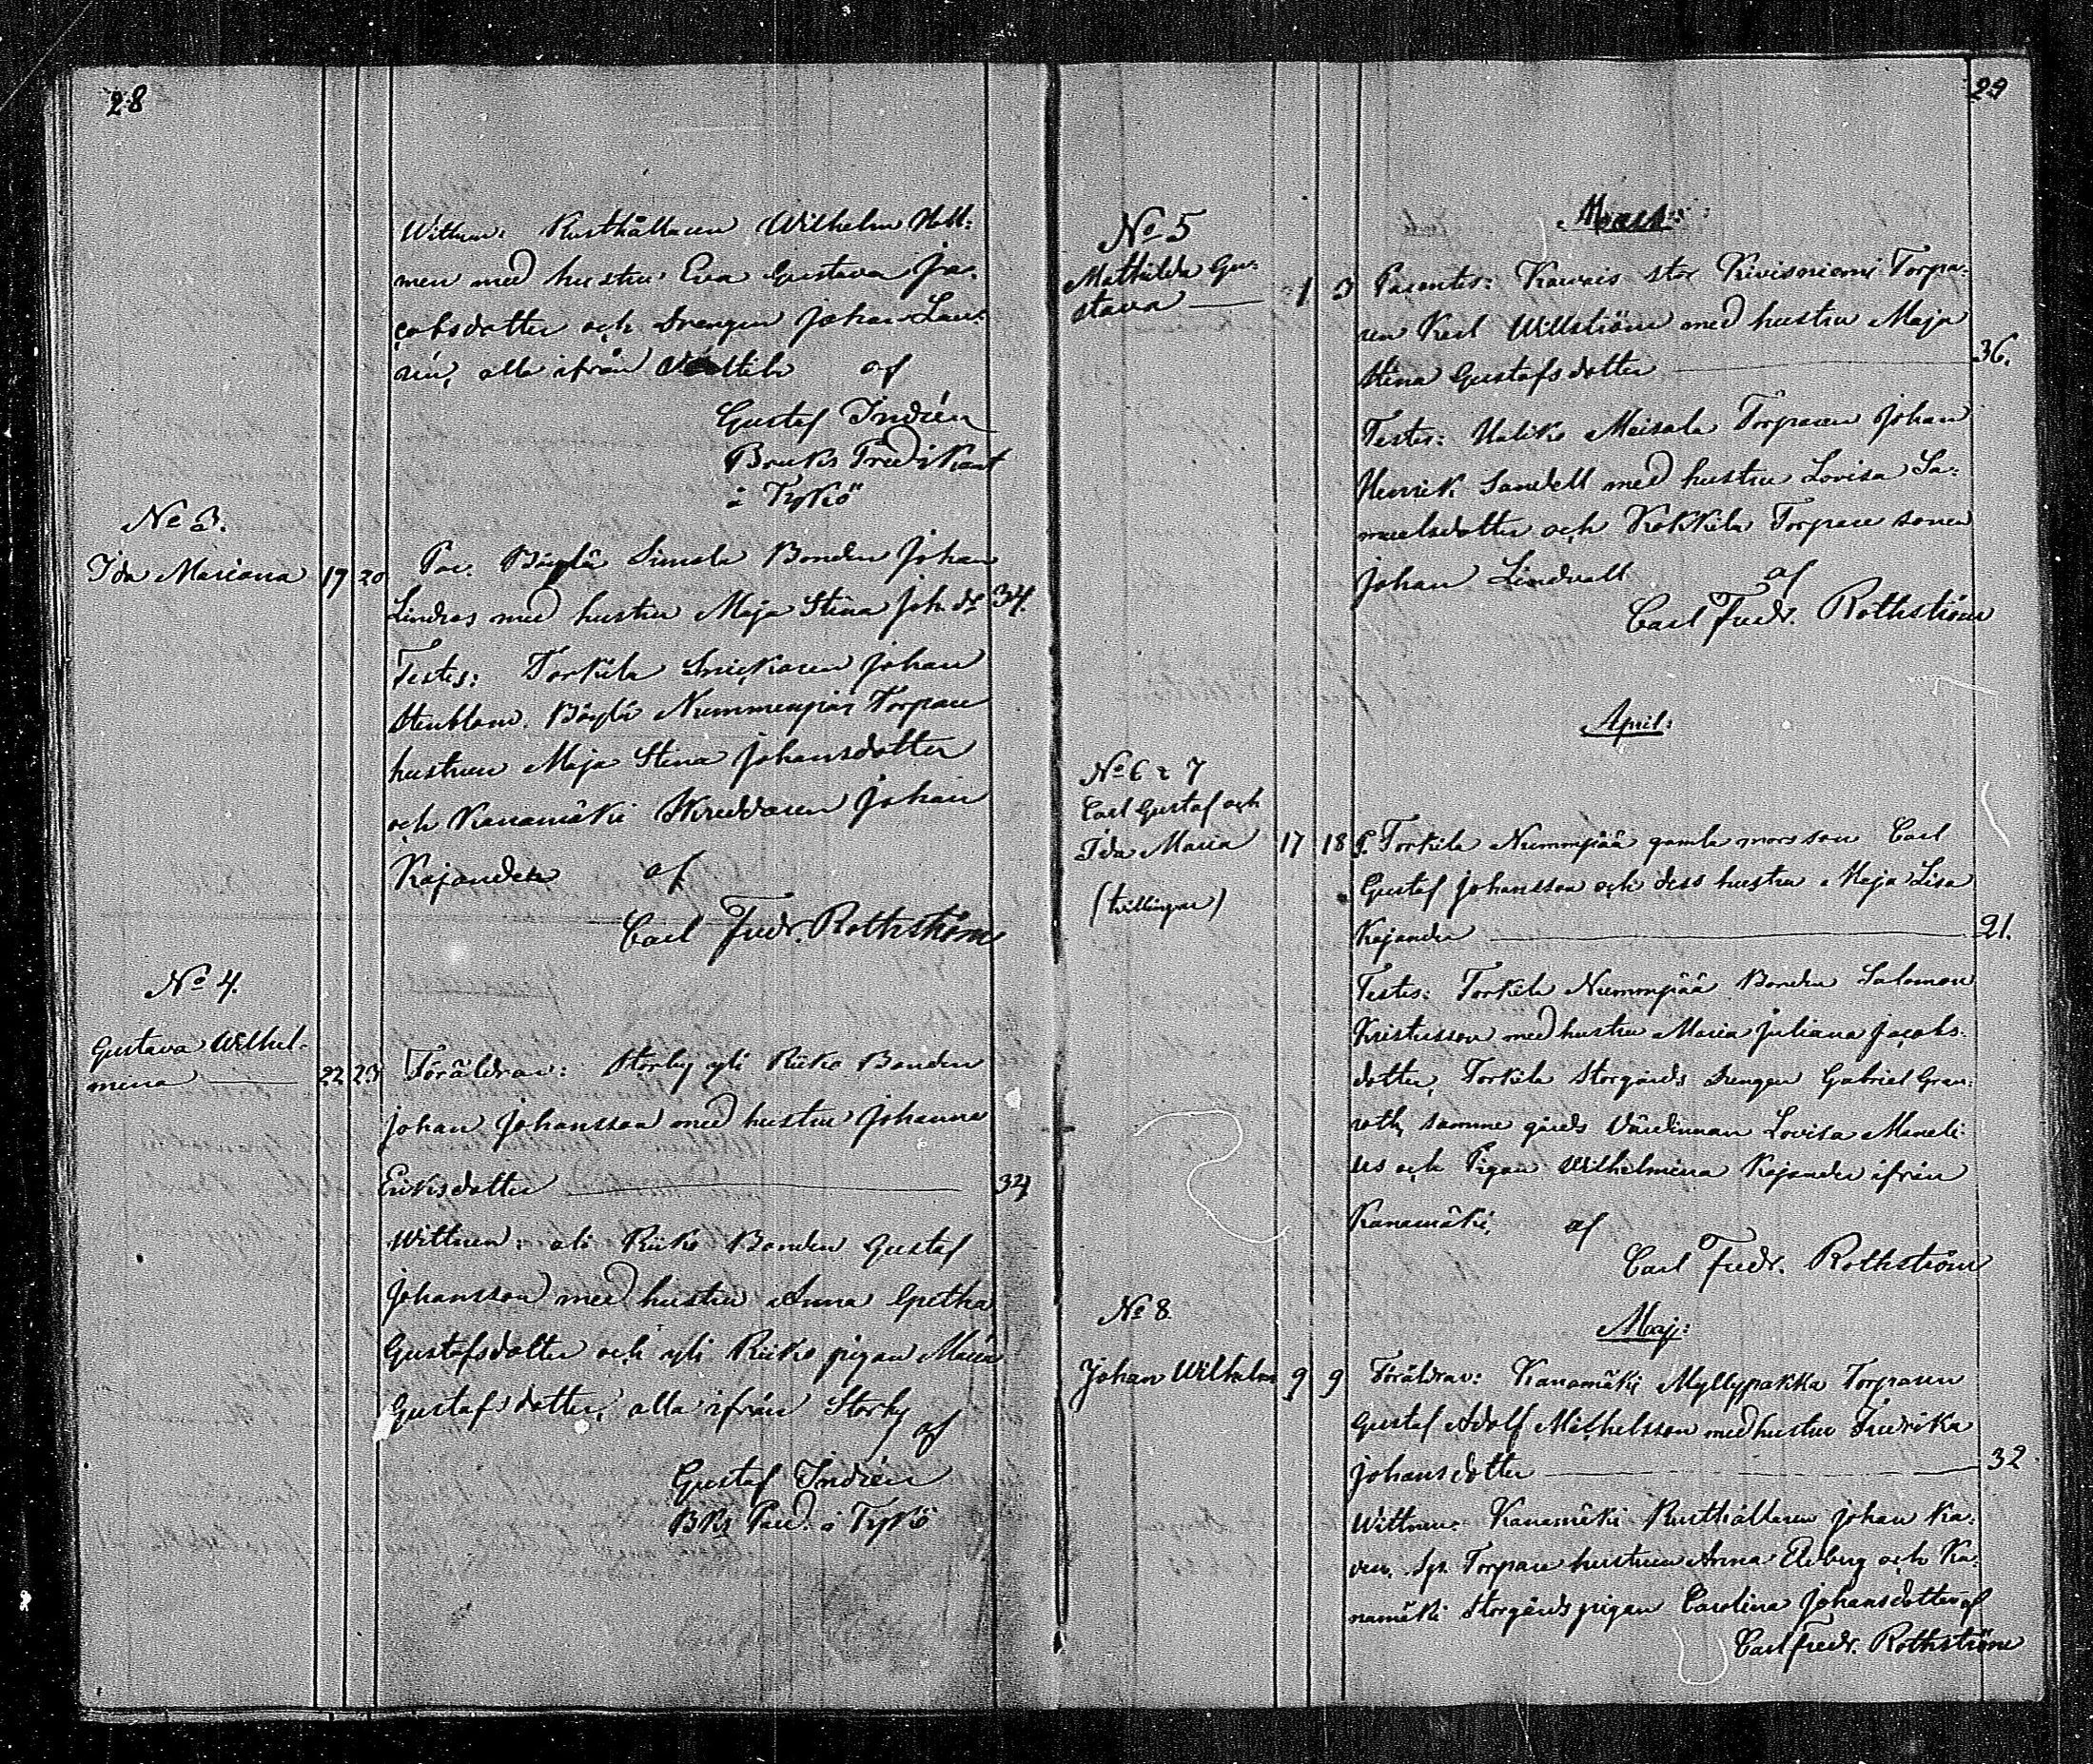 28
Wittnen: Rusthållaren Wilhelm Hell:
men med hustru Eva Gustava Ja:
cobsdotter och Drengen Johan Lau:
rén, alla ifrån af
Gustaf Indrén
Bruks Predikant
å Tykö
No 3.
Ida Mariana 17 20 Par. Pöylä Simola Bonden Johan
Lindros med hustru Maja Stina Joh.dr 34.
Testes: Torkila Snickaren Johan
Stenblom. Pöylä Nummenpää Torpare
hustrun Maja Stina Johansdotter
och Kanamäki Skreddaren Johan
Kajander af
Carl Fredr. Rothström
No 4.
Gustava Wilhel-
mina 22 23 Föräldrar: Storby yli Riiko Bonden
Johan Johansson med hustru Johanna
Eriksdotter 34
Wittnen: ali Riiko Bonden Gustaf
Johansson med hustru Anna Gretha
Gustafsdotter och yli Riiko pigan Maria
Gustafsdotter, alla ifrån Storby
af
Gustaf Indrén
Bks Pred. å Tykö
29
Mars:
No 5
Mathilda Gu-
stava 1 3 Parentes: Karvais stor Kivisniemi Torpa:
ren Karl Willström med hustru Maja
Stina Gustafsdotter 36.
Testes: Haliko Meisala Torparen Johan
Henrik Sandell med hustru Lovisa Sa:
muelsdotter och Kokkila Torpare sonen
Johan Lindvall af
Carl Fredr. Rothström
April:
No 6 & 7
Carl Gustaf och
Ida Maria 17 18 P. Torkila Nummpää gamla mors son Carl
(tvillingar)
Gustaf Johansson och dess hustru Maja Lisa
Kajander 21.
Testes: Torkila Nummpää Bonden Salomon
Kristersson med hustru Maria Juliana Jacobs:
dotter, Torkila Storgårds Drengen Gabriel Gran:
roth, samme gårds Värdinnan Lovisa Mandeli:
us och Pigan Wilhelmina Kajander ifrån
Kanamäki, af
Carl Fredr. Rothström
No 8.
Maj:
Johan Wilhelm 9 9 Föräldrar: Kanamäki Myllypakka Torparen
Gustaf Adolf Michelsson med hustru Fredrika
Johansdotter 32
Wittnen: Kanamäki Rusthållaren Johan Ka:
ven. Torpare hustrun Anna Elvberg och Ka:
namäki Storgårds pigan Carolina Johansdotter af
Carl Fredr. Rothström